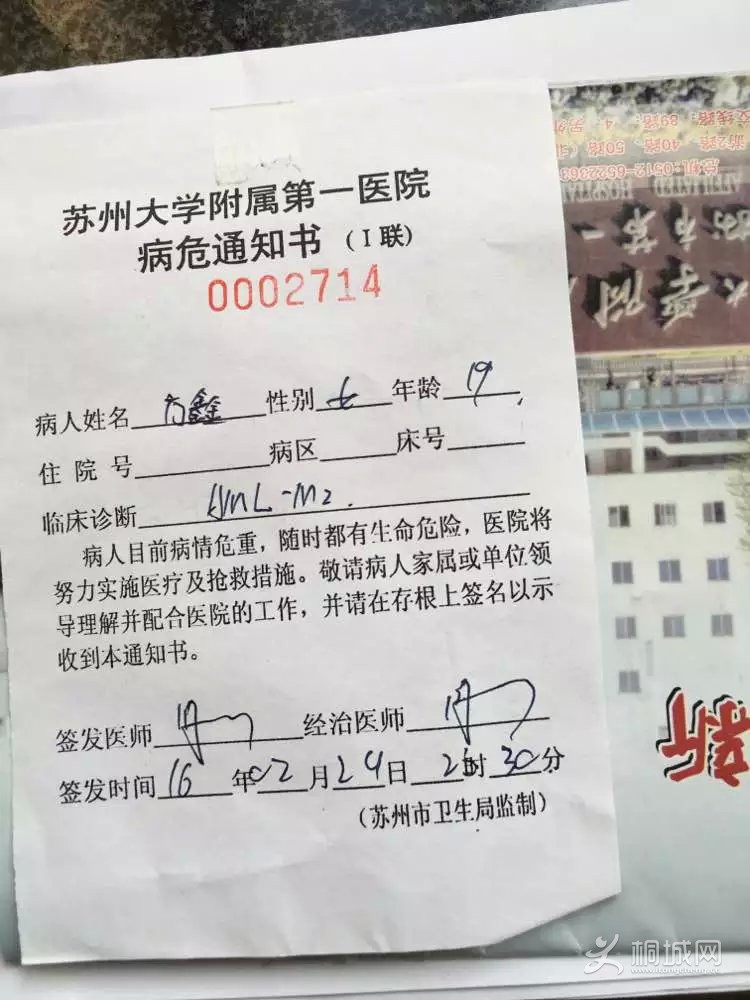 苏州大学附属第一医院
病危通知书（I联）
0002714
病人姓名 方鑫 性别 女 年龄 19
住院号 病区 床号
临床诊断 AML-M2
病人目前病情危重，随时都有生命危险，医院将
努力实施医疗及抢救措施。敬请病人家属或单位领
导理解并配合医院的工作，并请在存根上签名以示
收到本通知书。
签发医师 经治医师
签发时间 16 年 02 月 24 日 时 30 分
（苏州市卫生局监制）
总机:0512-6522363
大学附
市第一
新
桐城网